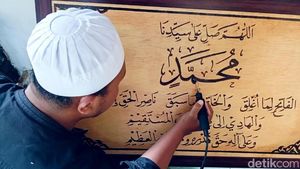 اللهم صل على سيدنا
محمد
الفاتح لما أغلق والخاتم لما سبق ناصر الحق
والهادي إلى المستقيم
وعلى آله حق قدره العظيم
detikcom